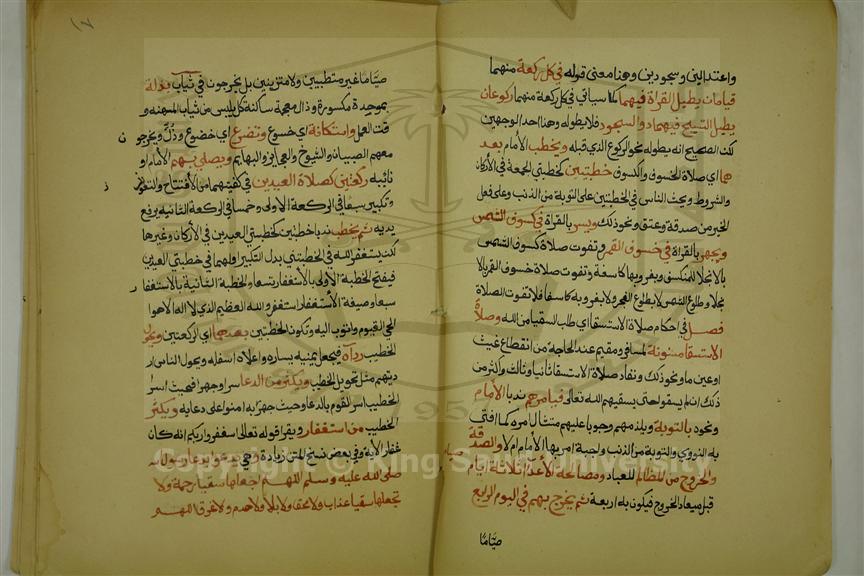 واعتدالين وسجودين وهذا معنى قوله في كل ركعة منهما
قيامان يطيل القراة فيهما كما سياتي في كل ركعة منهما ركوعان
يطيل التسبيح فيهما دون السجود فلا يطوله وهذا احد الوجهين
لكن الصحيح انه يطوله نحو الركوع الذي قبله ويخطب الامام بعد
هما اي صلاة الخسوف والكسوف خطبتين كخطبتي الجمعة في الاركان
والشروط ويحث الناس في الخطبتين على التوبة من الذنب وعلى فعل
الخير من صدقة وعتق ونحو ذلك ويسر بالقراة في كسوف الشمس
ويجهر بالقراة في خسوف القمر وتفوت صلاة كسوف الشمس
بالانجلا للمنكسف وبغروبها كاسفة وتفوت صلاة خسوف القمر بالا
نجلا وطلوع الشمس لا بطلوع الفجر ولا بغروبه كاسفا فلا تفوت الصلاة
فصل في احكام صلاة الاستسقا اي طلب السقيا من الله وصلاة
الاستسقا مسنونة لمسافر ومقيم عند الحاجة من انقطاع غيث
او عين ما ونحو ذلك وتعاد صلاة الاستسقا ثانيا وثالثا واكثر من
ذلك ان لم يسقوا حتى يسقيهم الله تعالى فيامرهم ندبا الامام
ونحوه بالتوبة ويلزمهم وجوبا عليهم امتثال امره كما افتى
به النووي والتوبة من الذنب واجبة امر بها الامام ام لا والصدقة
والخروج من المظالم للعباد ومصالحة الأعدا وصيام ثلاثة ايام
قبل ميعاد الخروج فيكون به اربعة ثم يخرج بهم في اليوم الرابع
صياما
١٧
صياما غير متطيبين ولا متزينين بل يخرجون في ثياب بذلة
بموحدة مكسورة وذال معجمة ساكنة كل يلبس من ثياب المهنة و
قت العمل واستكانة اي خشوع وتضرع اي خضوع وذل ويخرجون
معهم الصبيان والشيوخ والعجايز والبهايم ويصلي بهم الامام او
نايبه ركعتين كصلاة العيدين في كيفيتهما من الافتتاح والتعوذ
وتكبير سبعا في الركعة الاولى وخمسا في الركعة الثانية برفع
يديه ثم يخطب ندبا خطبتين كخطبتي العيدين في الأركان وغيرها
لكن يستغفر الله في الخطبتين بدل التكبير اولهما في خطبتي العيدين
فيفتح الخطبة الاولى بالأستغفار تسعا والخطبة الثانية بالاستغفار
سبعا وصيغة الأستغفار استغفر الله العظيم الذي لا اله الا هو ا
لحي القيوم واتوب اليه وتكون الخطبتين بعدهما اي الركعتين ويحول
الخطيب رداه فيجعل يمينه يساره واعلاه اسفله ويحول الناس ار
ديتهم مثل تحويل الخطيب ويكثر من الدعا سرا وجهرا فحيث اسرا
لخطيب اسر القوم بالدعا وحيث جهر به امنوا على دعايه ويكثر
الخطيب من استغفار ويقرا قوله تعالى استغفروا ربكم انه كان
غفارا الاية وفي بعض نسخ المتن زيادة وهي يدعوا بدعا رسول الله
صلى الله عليه وسلم اللهم اجعلها سقيا رحمة ولا
تجعلها سقيا عذاب ولا محق ولا بلا ولا هدم ولا غرق اللهم
Copyright © King Saud University